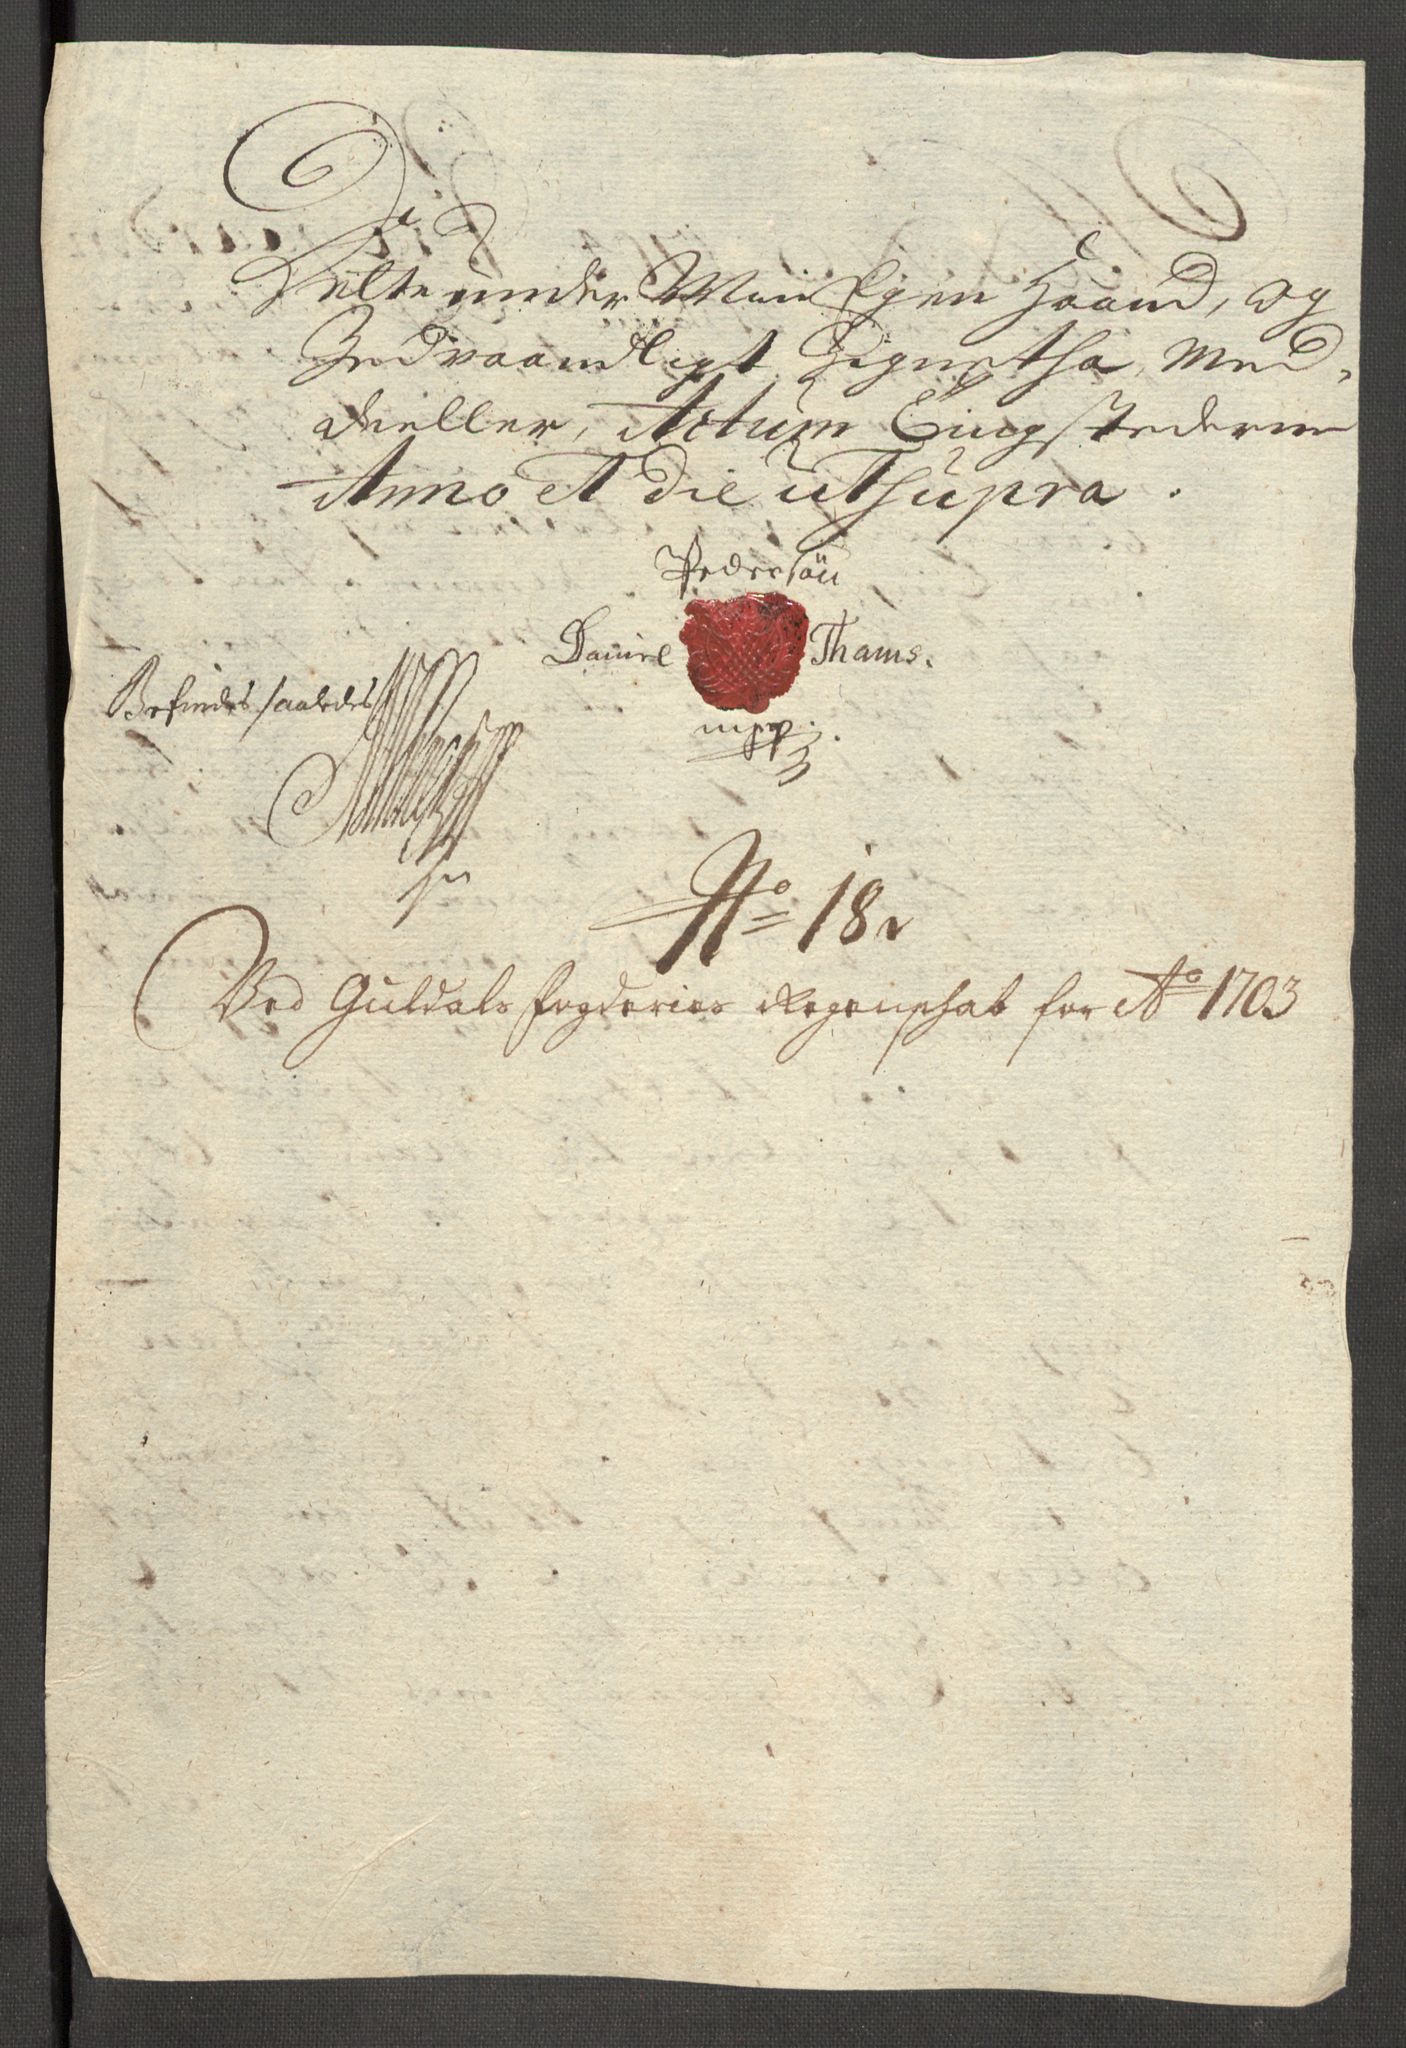 Dette under Min Egen Haand, og
Sedvaandligt Zignetha, Med,
deeller, Actum Tingstederne
Anno et Die ut Supra.
Pedersön
Daniel Thams.
mpp.
Befindes saaledes
No 18
Ved Guldals fogderies Regenschab for Ao 1703